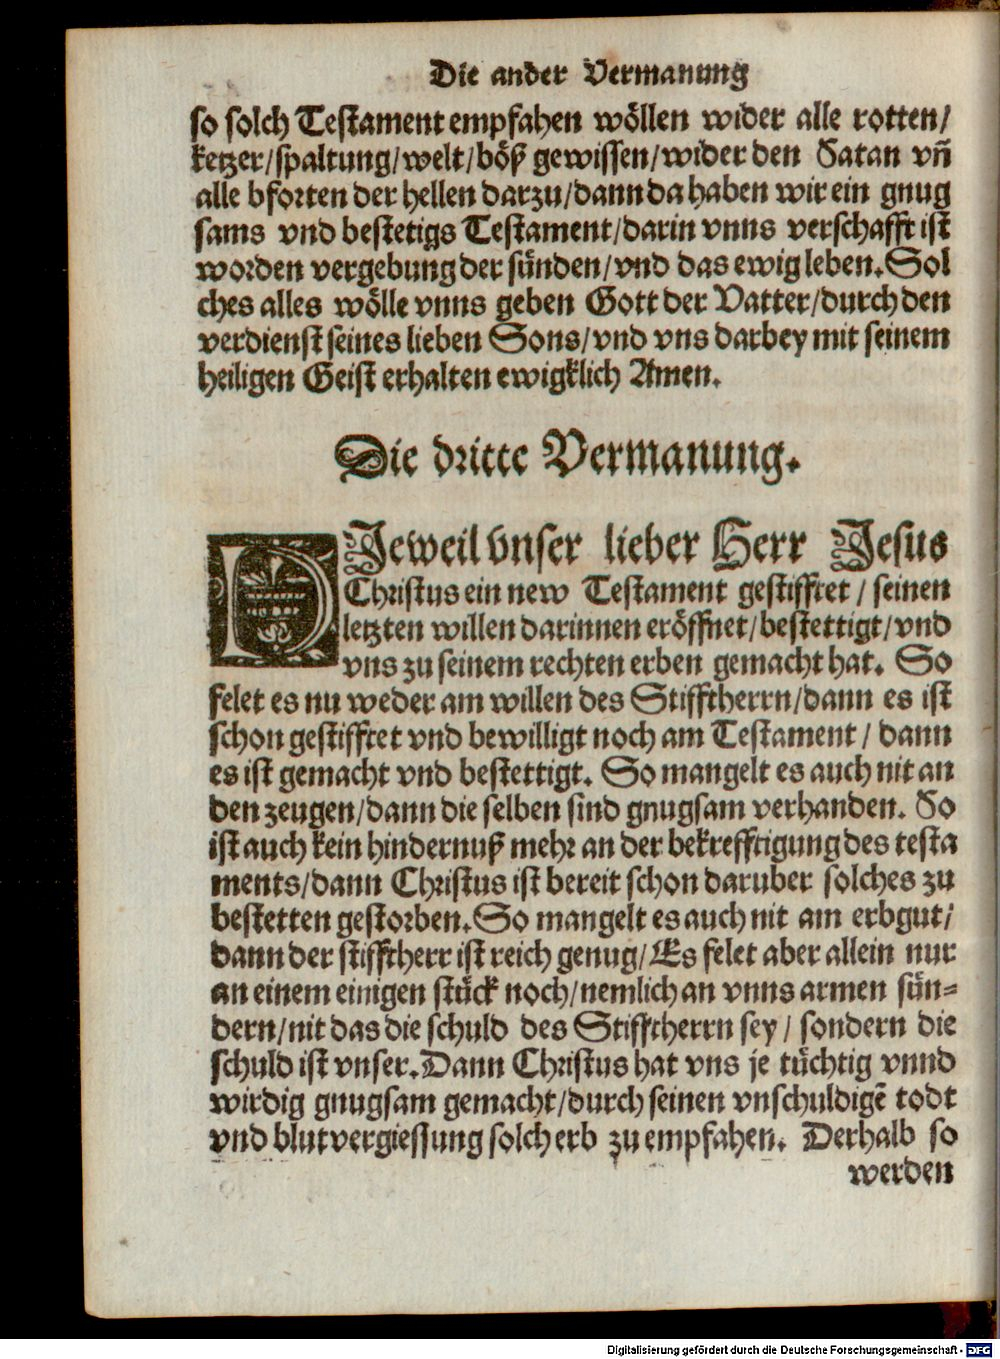 Die ander Vermanung
so solch Testament empfahen wöllen wider alle rotten/
ketzer/spaltung/welt/böß gewissen/wider den Satan vñ
alle bforten der hellen darzu/dann da haben wir ein gnug
sams vnd bestetigs Testament/darin vnns verschafft ist
worden vergebung der sünden/vnd das ewig leben. Sol
ches alles wölle vnns geben Gott der Vatter/durch den
verdienst seines lieben Sons/vnd vns darbey mit seinem
heiligen Geist erhalten ewigklich Amen.
Die dritte Vermanung.
DIeweil vnser lieber Herr Jesus
Christus ein new Testament gestifftet / seinen
letzten willen darinnen eröffnet/bestettigt/vnd
vns zu seinem rechten erben gemacht hat. So
felet es nu weder am willen des Stifftherrn/dann es ist
schon gestifftet vnd bewilligt noch am Testament / dann
es ist gemacht vnd bestettigt. So mangelt es auch nit an
den zeugen/dann die selben sind gnugsam verhanden. So
ist auch kein hindernuß mehr an der bekrefftigung des testa
ments/dann Christus ist bereit schon daruber solches zu
bestetten gestorben. So mangelt es auch nit am erbgut/
dann der stifftherr ist reich genug/Es felet aber allein nur
an einem einigen stück noch/nemlich an vnns armen sün-
dern/nit das die schuld des Stifftherrn sey / sondern die
schuld ist vnser. Dann Christus hat vns je tüchtig vnnd
wirdig gnugsam gemacht/durch seinen vnschuldigē todt
vnd blutvergiessung solch erb zu empfahen. Derhalb so
werden
Digitalisierung gefördert durch die Deutsche Forschungsgemeinschaft - DFG